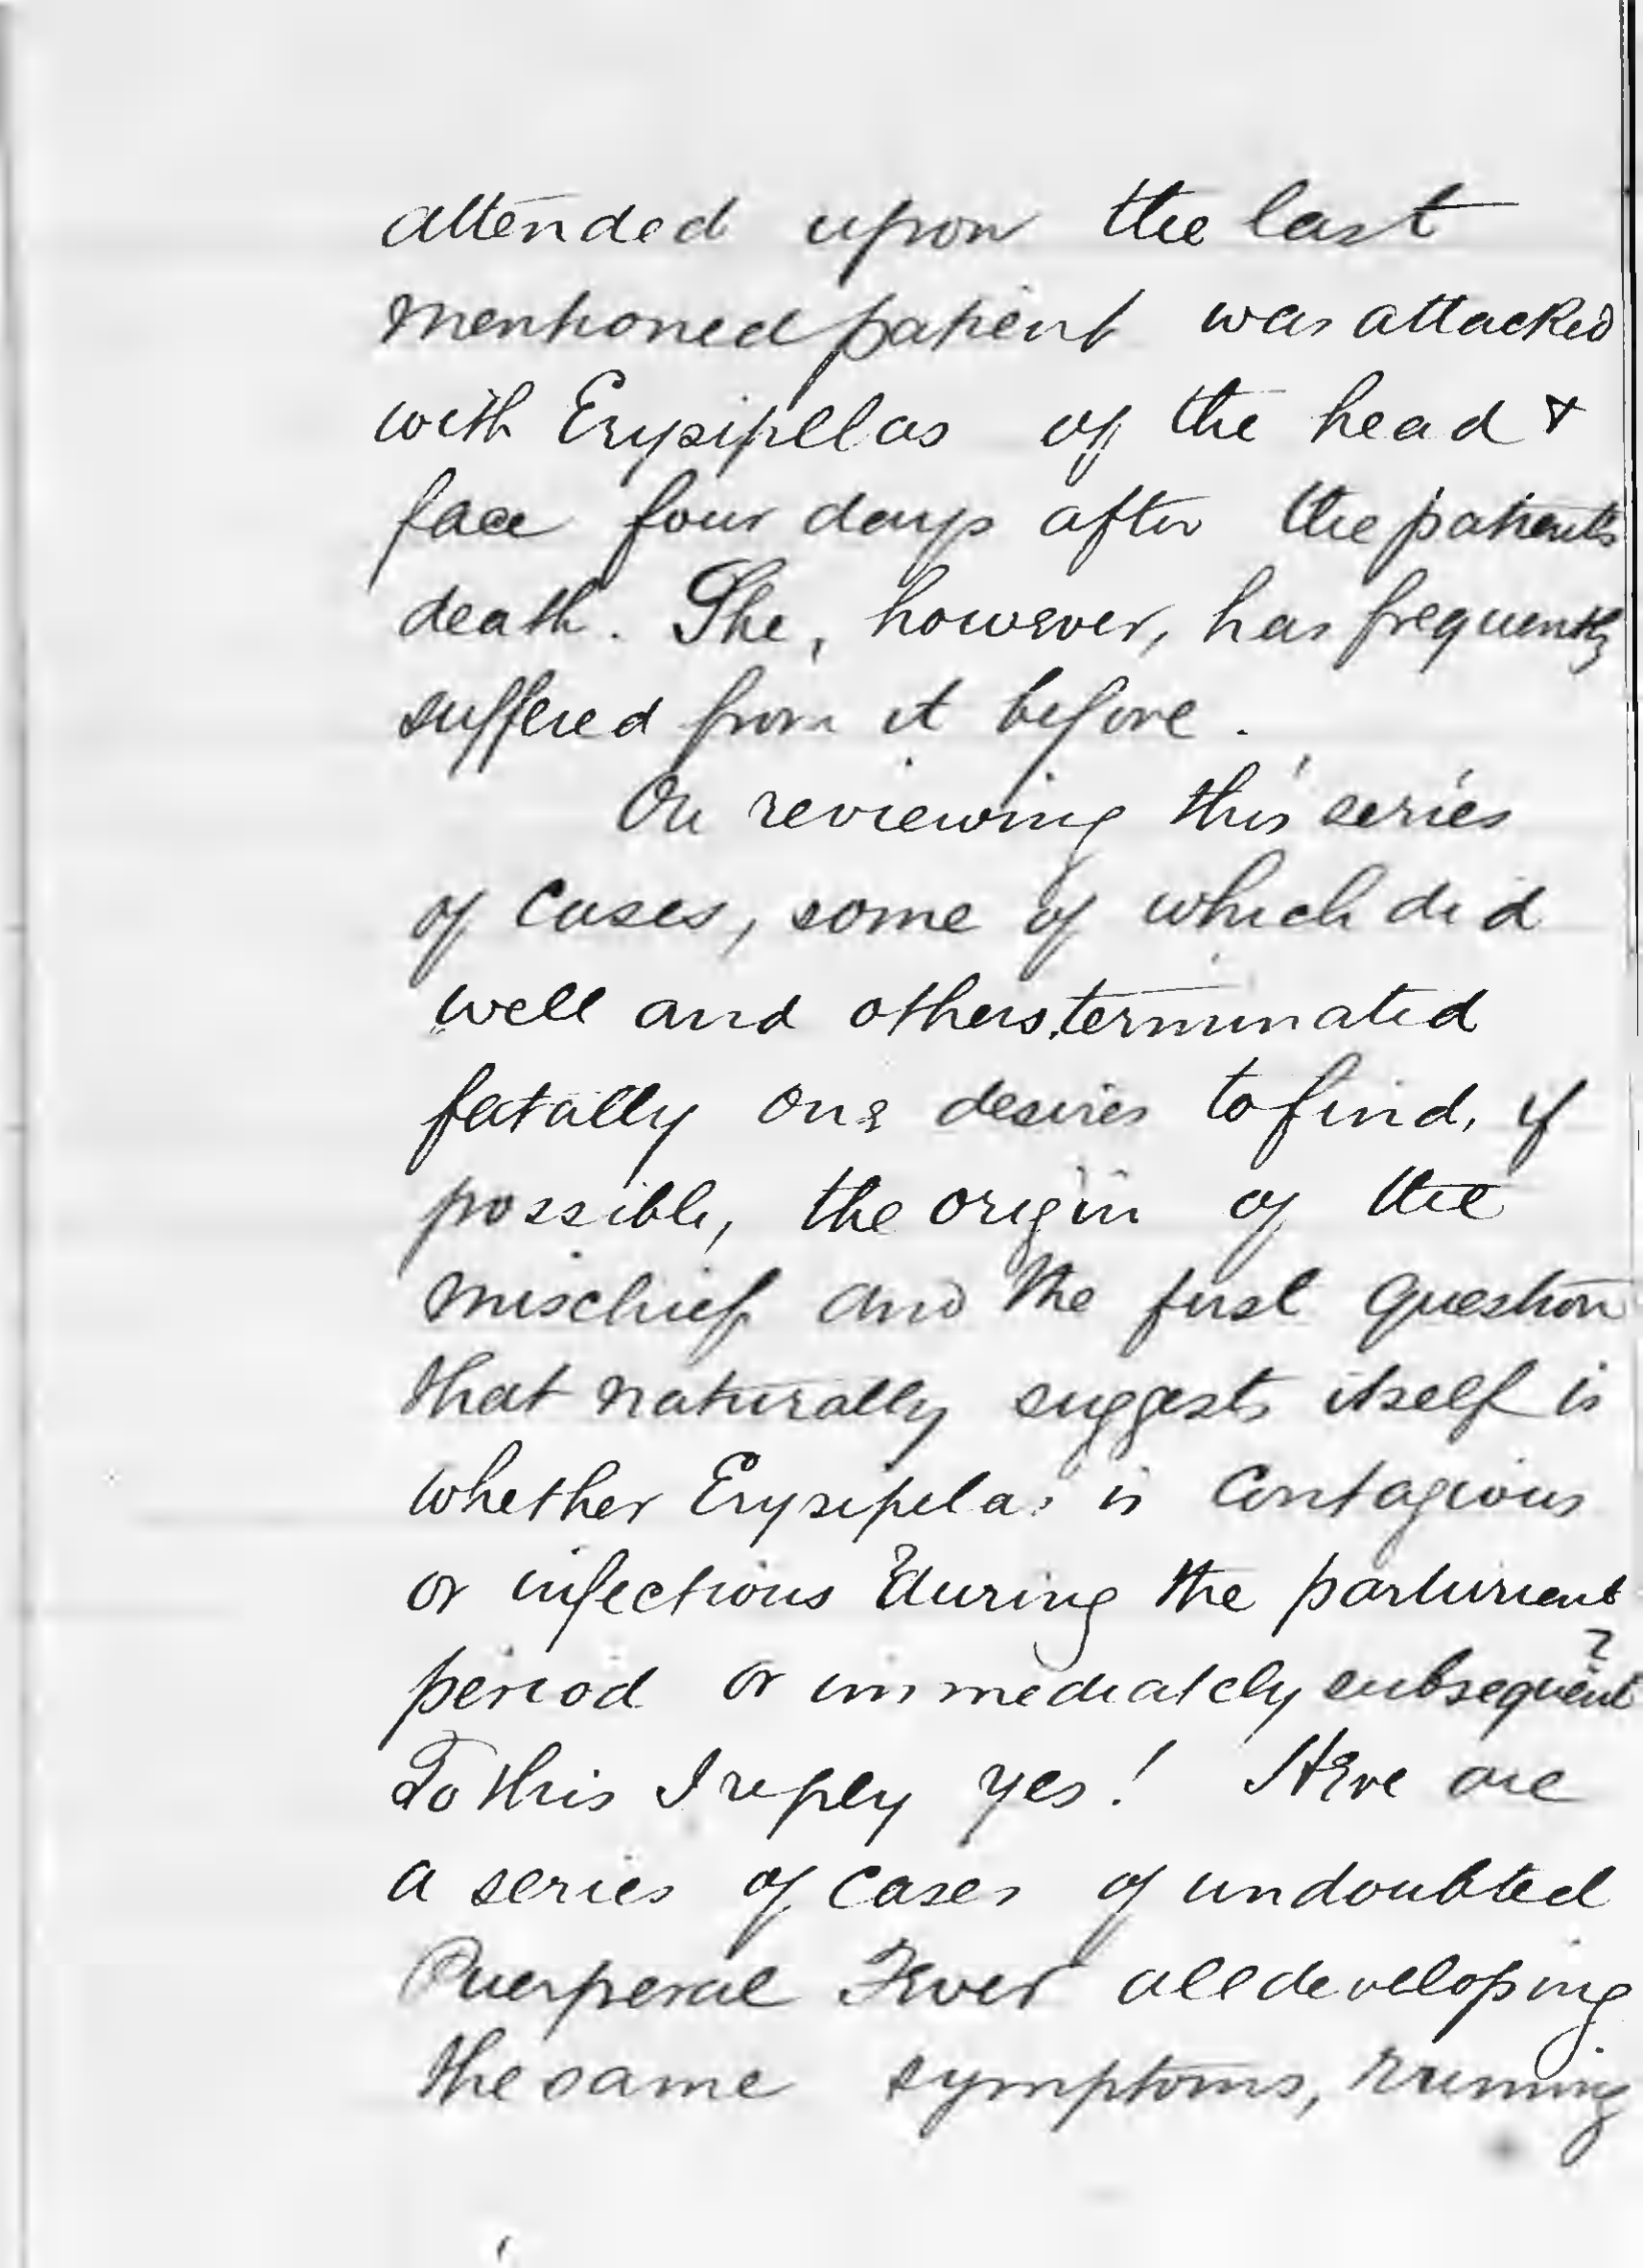 attended upon the last
mentioned patient was attacked
with Erysipellas of the head &
face four days after the patients
death. She, however, has frequently
suffered from it before.
On reviewing this series
of cases, some of which did
well and others terminated
fatally one desires to find, if
possible, the origin of the
mischief and the first question
that naturally suggests itself is
whether Erysipelas is contagious
or infectious during the parturient
period or immediately subsequent?
To this I reply yes! Here are
a series of cases of undoubted
Puerperal Fever all developing
the same symptoms, running